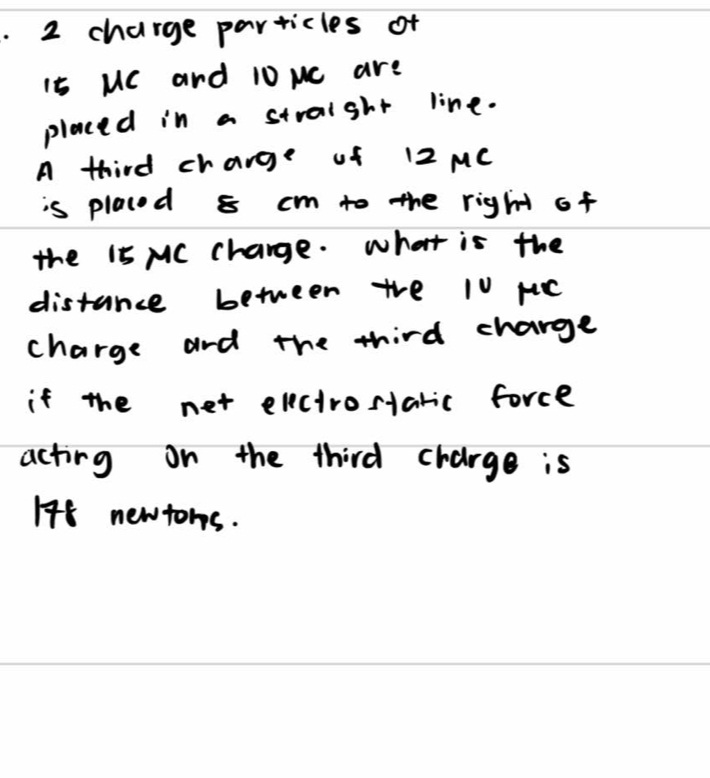 . 2 charge particles of
15 μC and 10 μC are
placed in a straight line.
A third charge of 12 μC
is placed 8 cm to the right of
the 15 μC charge. What is the
distance between the 10 μC
charge and the third charge
if the net electrostatic force
acting on the third charge is
newtons.